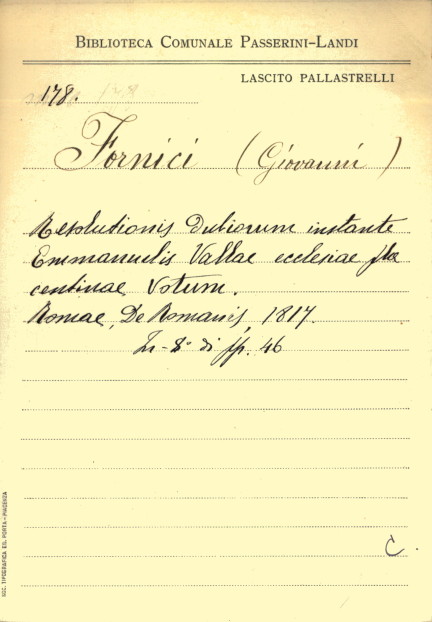 BIBLIOTECA COMUNALE PASSERINI-LANDI
LASCITO PALLASTRELLI
178.
Fornici (Giovanni)
Resolutionis dubiorum instante
Emmanuelis Vallae ecclesiae pla
centinae Votum.
Romae, De Romanis, 1817.
In-8° di pp. 46
C.
SOC. TIPOGRAFICA ED. PORTA-PIACENZA